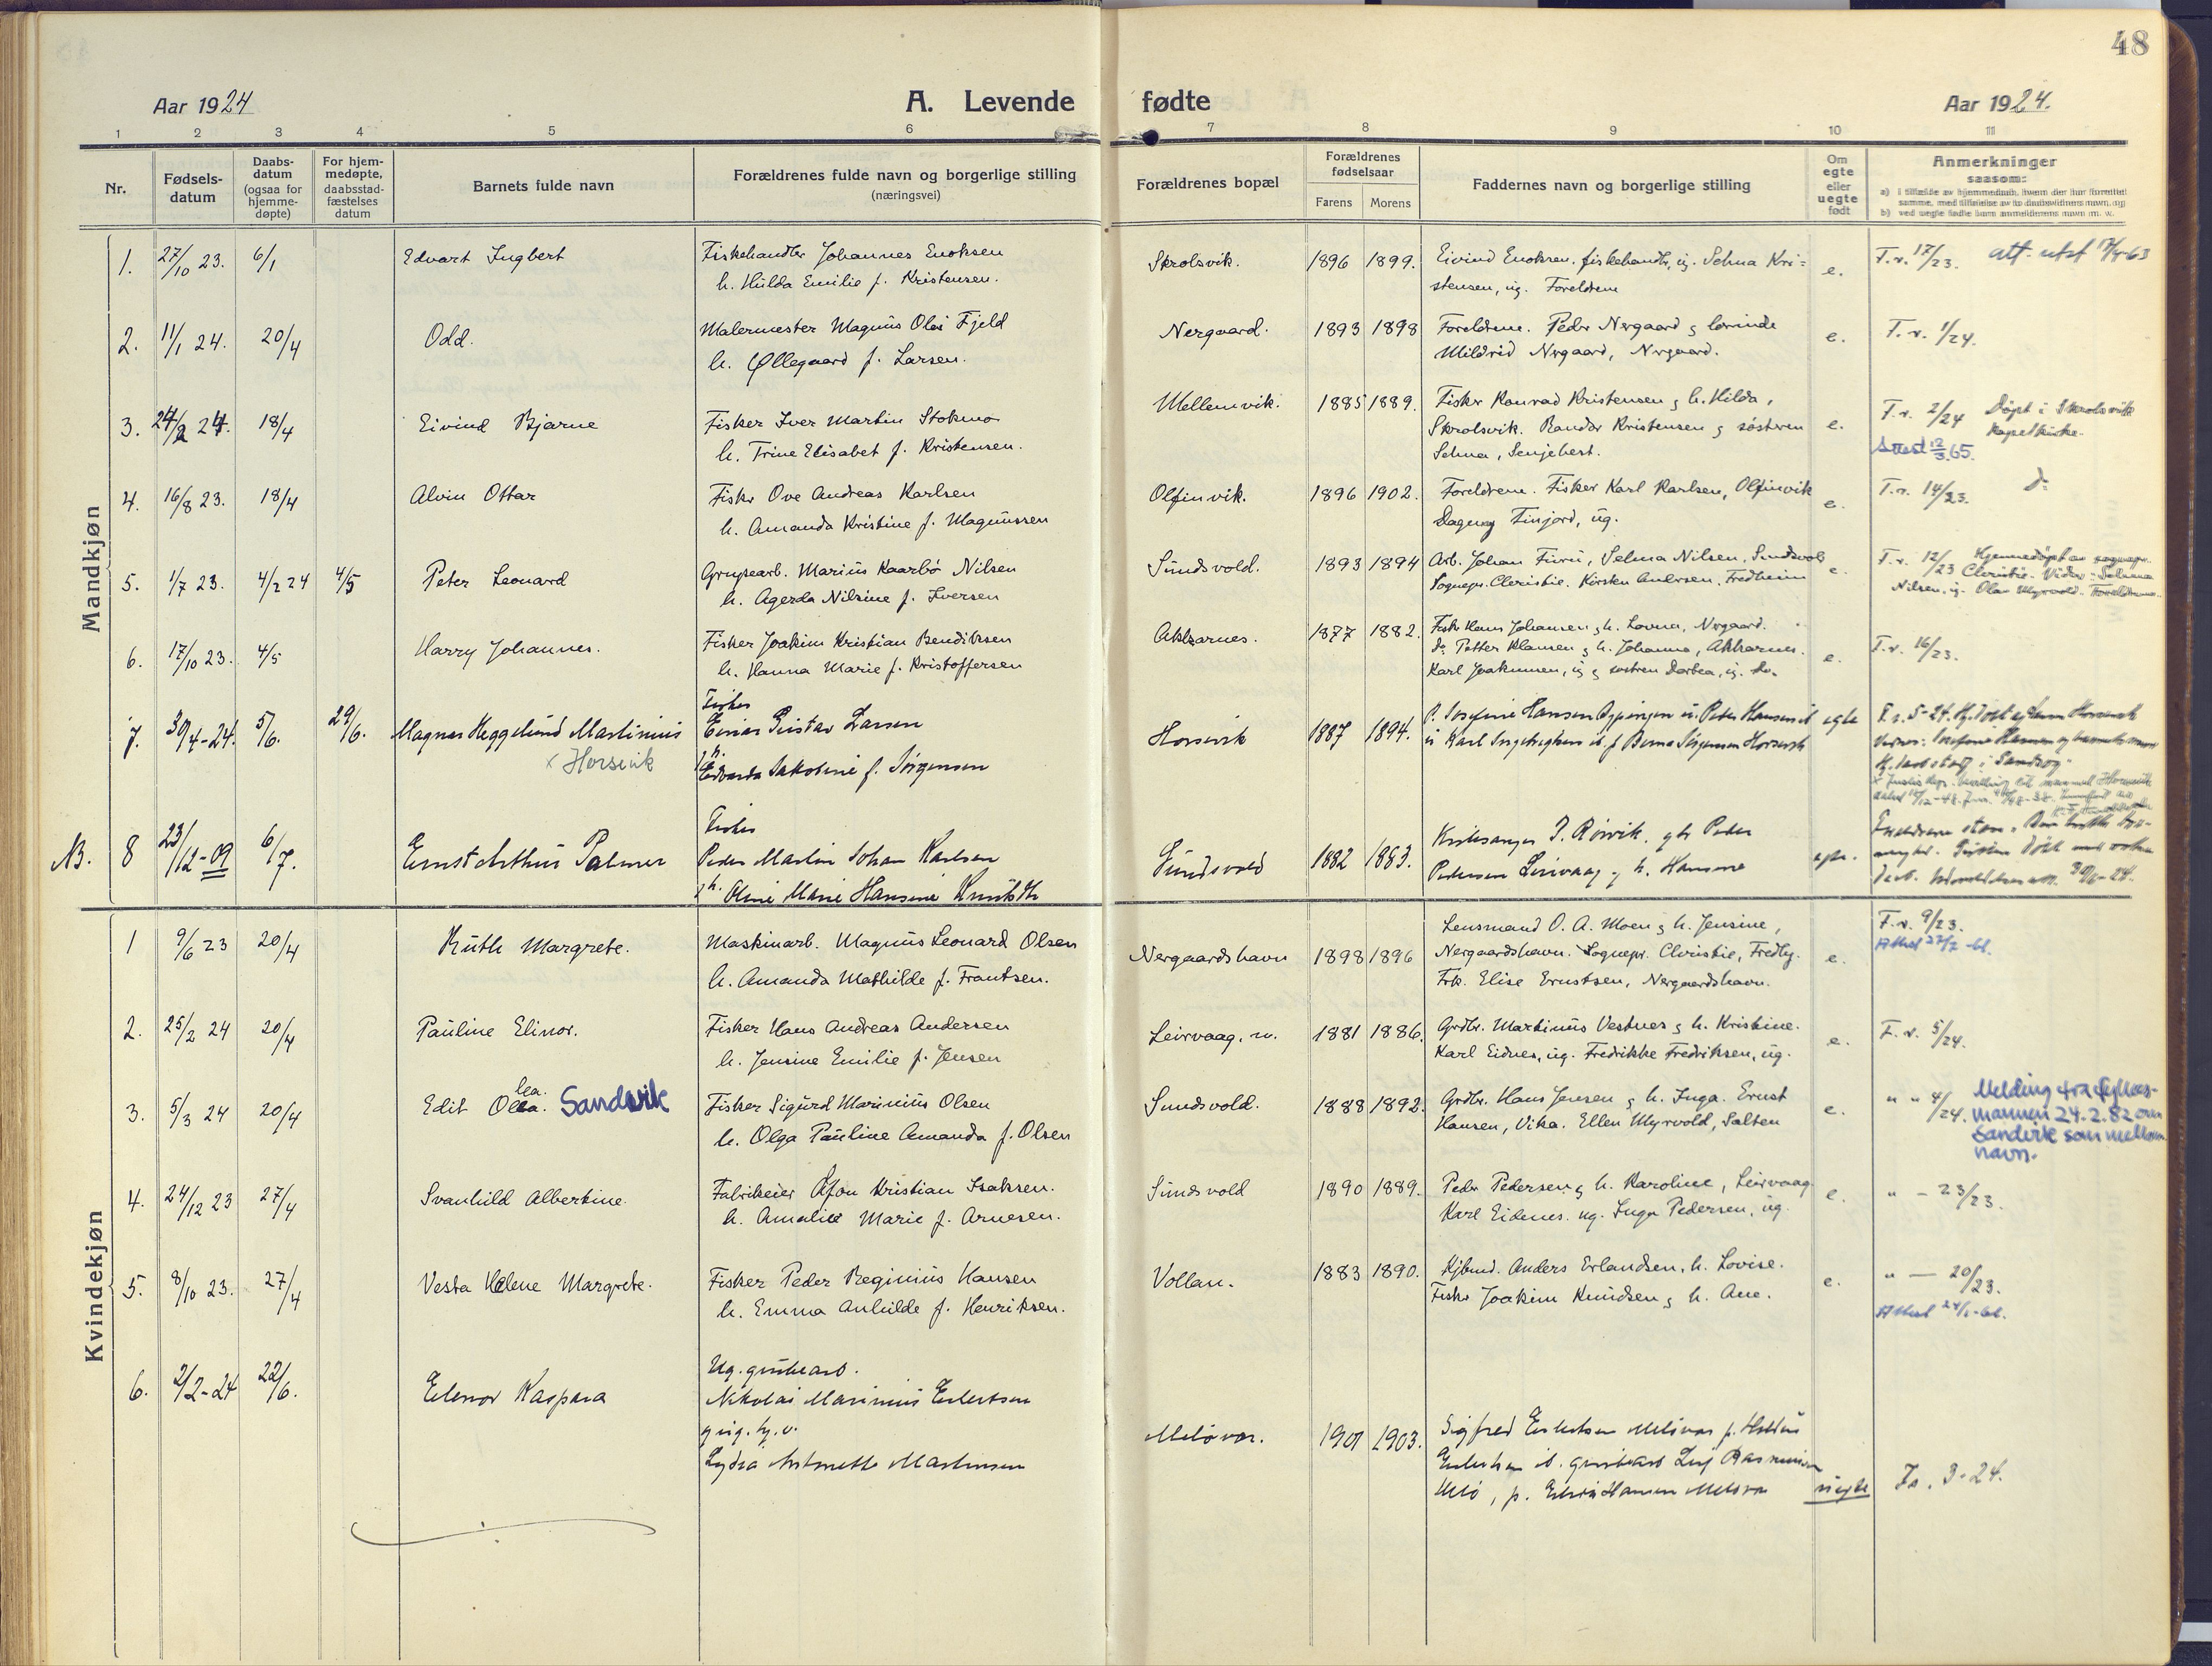 48
Aar 1924
A. Levende fødte
Aar 1924.
1 2 3 4 5 6 7 8 9 10 11
Nr.
Fødsels-
datum
Daabs-
datum
(ogsaa for
hjemme-
døpte)
For hjem-
medøpte,
daabsstad-
fæstelses
datum
Barnets fulde navn
Forældrenes fulde navn og borgerlige stilling
(næringsvei)
Forældrenes bopæl
Forældrenes
fødselsaar
Farens Morens
Faddernes navn og borgerlige stilling
Om
egte
eller
uegte
født
Anmerkninger
saasom:
Mandkjøn
1. 27/10 23. 6/1 Edvart Ingbert
Fiskehandler Johannes Enoksen
h. Hilda Emilie f. Kristensen.
Skrolsvik. 1896 1899.
Eivind Enoksen, fiskehandl., ug. Selma Kri-
stensen, ug. Foreldrene
e. F.r. 17/23.
2. 11/1 24. 20/4 Odd.
Malermester Magnus Olai Fjeld
h. Øllegaard f. Larsen.
Nergaard. 1893 1898
Foreldrene. Peder Nergaard
Mildrid Nergaard, Nergaard.
e. F.r. 1/24.
3. 24/2 24. 18/4 Eivind Bjarne
Fisker Iver Martin Stokmo
h. Trine Elisabet f. Kristensen.
Mellemvik. 1885 1889.
Fisker Konrad Kristensen & h. Hilda,
Skrolsvik. Randor Kristensen & søstren
Selma, Senjehest.
e. F.r. 2/24 Døpt i Skrolsvik
kapelkirke.
Attest 12/3 65.
4. 16/8 23. 18/4 Alvin Ottar
Fisker Ove Andreas Karlsen
h. Amanda Kristine f. Magnussen
Olfinvik. 1896 1902.
Foreldrene. Fisker Karl Karlsen, Olfinvik
Dagny Finjord, ug.
e. F.r. 14/23. do
5. 1/7 23. 4/2 24 4/5 Peter Leonard
Grupearb. Marius Kaarbø Nilsen
h. Agerda Nilsine f. Iversen
Sundsvold. 1893 1894
Arb. Johan Furu, Selma Nilsen, Sundsvold
Sognepr. Christie. Kirsten Andersen, Fredheim
e. F.r. 12/23 Hjemmedøpt av sognepr.
Christie. Vidner: Selma
Nilsen, ug. Olav Myrvold. Foreldrene.
6. 17/10 23. 4/5 Harry Johannes.
Fisker Joakim Kristian Bendiksen
h. Hanna Marie f. Kristoffersen
Akkarnes. 1877 1882.
Fisker Hans Johansen & h. Lovna, Nergaard.
do Petter Klausen & h. Johanna, Akkarnes.
Karl Joakimsen, ug & søstren Dorbea, ug. do.
e. F.r. 16/23.
7. 30/4-24. 5/6. 29/6. Magnar Heggelund Martinius
x Horsevik
Fisker
Einar Gustav Larsen
h.
Edvarda Jakobine f. Jørgensen
Horsevik 1887 1894.
egte
8 23/12-09 6/7. Ernst Arthur Palmer
Fisker
Peder Martin Johan Karlsen
h. Oline Marie Hansine
Sundsvold 1882 1883.
Kirkesanger J. Rørvik, gbr Peder
Pedersen Leirvaag & h. Hansine
egte.
Kvindekjøn
1 9/6 23 20/4 Ruth Margrete.
Maskinarb. Magnus Leonard Olsen
h. Amanda Mathilde f. Frantsen.
Nergaardshavn 1898 1896
Lensmand O. A. Moen & h. Jensine,
Nergaardshavn. Sognepr. Christie, Fredly.
Frk. Elise Ernstsen, Nergaardshavn.
e. F.r. 9/23.
2. 25/2 24 20/4 Pauline Elinor.
Fisker Hans Andreas Andersen
h. Jensine Emilie f. Jensen
Leirvaag, n. 1881 1886.
Grdbr. Martinus Vestnes & h. Kristine.
Karl Eidnes, ug. Fredrikke Fredriksen, ug.
e. F.r. 5/24.
3. 5/3 24 20/4 Edit Olea. Sandvik
Fisker Sigurd Marinius Olsen
h. Olga Pauline Amanda f. Olsen
Sundsvold. 1888 1892.
Grdbr. Hans Jensen & h. Inga. Ernst
Hansen, Vika. Ellen Myrvold, Salten
e. " " 4/24. Melding fra fylkes-
mannen 24.2.82 om
Sandvik som mellom-
navn.
4. 24/12 23 27/4 Svanhild Albertine.
Fabrikeier Afon Kristian Isaksen.
h. Amalie Marie f. Arnesen.
Sundsvold 1890 1889.
Peder Pedersen & h. Karoline, Leirvaag
Karl Eidnes. ug. Inga Pedersen, ug.
e. " - 23/23.
5. 8/10 23. 27/4 Vesta Helene Margrete.
Fisker Peder Reginius Hansen
h. Emma Anhilde f. Henriksen.
Vollan. 1883 1890.
Kjbmd. Anders Erlandsen, h. Lovise.
Fisker Joakim Knudsen & h. Ane.
e. " — 20/23.
6. 2/2-24 22/6. Elenor Kaspara
Ug. grubearb.
Nikolai Marinius Eilertsen
Lydia Antonette Martinsen
Meløvær. 1901 1903.
uegte Fr. 3-24.